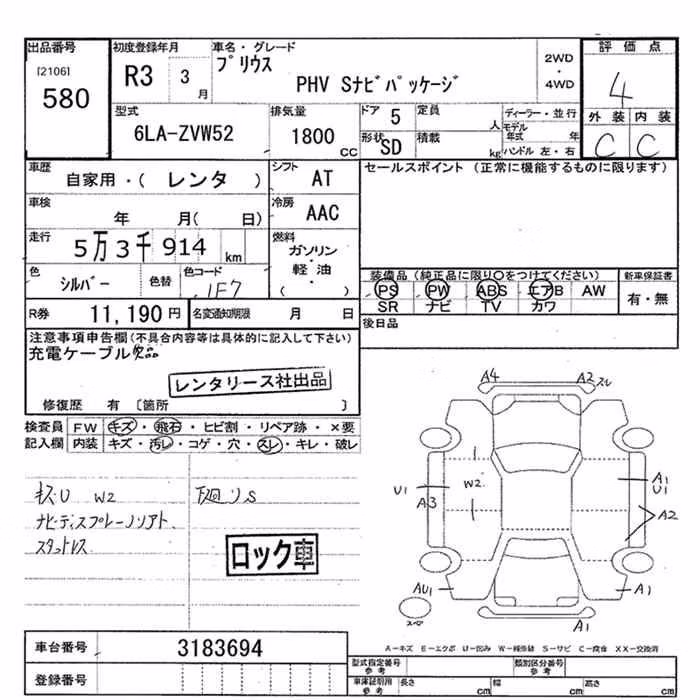 出品番号
[2106]
580
初度登録年月
R3 3 月
車名・グレード
プリウス
PHV Sナビパッケージ
2WD
・
4WD
評価点
4
外装 内装
C C
型式
6LA-ZVW52
排気量
1800 CC
ドア 5
形状 SD
定員 人
積載 kg
ディーラー・並行
モデル年式 年
ハンドル 左・右
車歴
自家用・( レンタ )
シフト AT
セールスポイント (正常に機能するものに限ります)
車検
年 月( 日)
冷房 AAC
走行
5万3千914 km
燃料
ガソリン
・
軽・油
( )
色
シルバー
色替
色コード
1F7
装備品 (純正品に限り○をつけてください)
PS PW ABS エアB AW
SR ナビ TV カワ
新車保証書
有・無
R券 11,190 円
名変通知期限 月 日
後日品
注意事項申告欄(不具合内容等は具体的に記入して下さい)
充電ケーブル欠品
レンタリース社出品
修復歴 有 〔箇所 〕
検査員 FW キズ・飛石・ヒビ割・リペア跡・×要
記入欄 内装 キズ・汚レ・コゲ・穴・スレ・キレ・破レ
キズU W2
下廻りS
ナビーディスプレーノソアト、
スタットレス
ロック車
A4 A2 スレ
U1 A3 W2 A1 U1
A2
AU1 A1
A1
車台番号 3183694
登録番号
A-キズ E-エクボ U-凹み W-補修跡 S-サビ C-腐食 XX-交換済
型式指定番号 参考
類別区分番号 参考
車庫証明用 参考
長さ cm
幅 cm
高さ cm